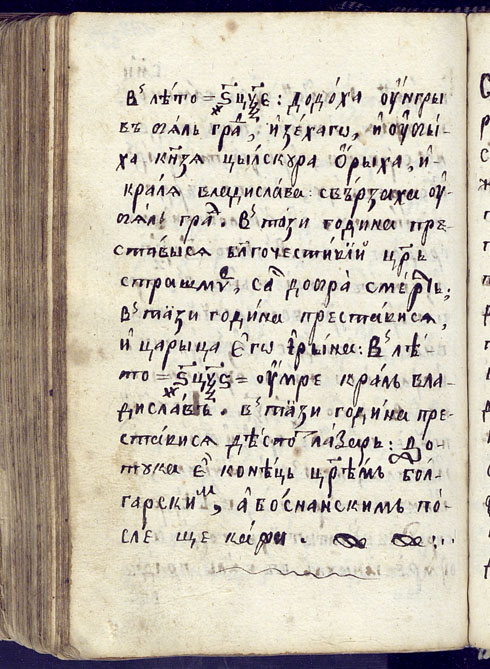 Въ лѣто = ҂ѕ҃цч҃є : додоха оугнгры
въ ѡꙗль гра, изехаго, и оу
ха кнѕꙗ цылскура Ѻрыха, и
кралꙗ владислава свързаха оу
ѡꙗль гра. Въ тази година пре
ставысѧ блгочестивїй црь
страшмⷬ, са добра смерть;
Въ тази година преставися,
и царыца єго Iрына: Въ лѣ
то = ҂ѕ҃цч҃ѕ = оумре краль вла
диславъ. въ тази година пре-
стависѧ дѣспо Лазарь: до
тука є конѣць црѣмъ бол-
гарскиⷨ, а боснанскимъ по-
сле ще кажи.